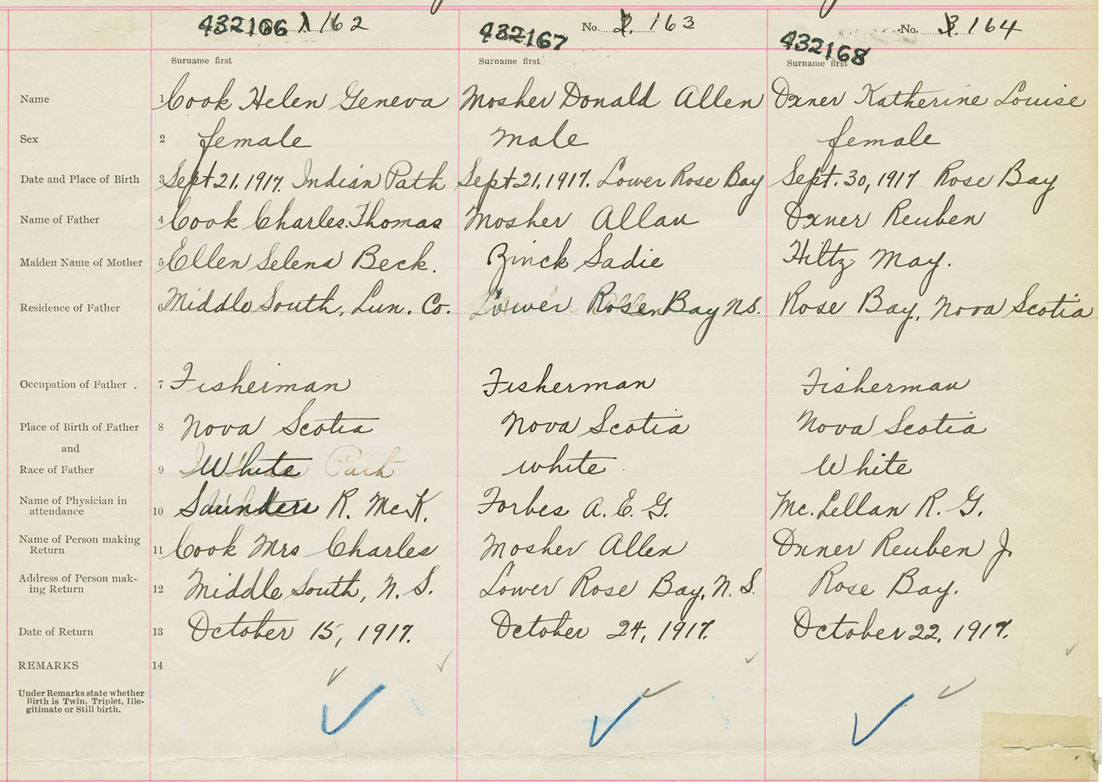 432166 162
432167 No. 163
432168 No. 164
Surname first Surname first Surname first
Name 1 Cook Helen Geneva Mosher Donald Allen Oxner Katherine Louise
Sex 2 female male female
Date and Place of Birth 3 Sept. 21, 1917. Indian Path Sept. 21, 1917. Lower Rose Bay Sept. 30, 1917 Rose Bay
Name of Father 4 Cook Charles Thomas Mosher Allan Oxner Reuben
Maiden Name of Mother 5 Ellen Selena Beck. Zinck Sadie Hiltz May.
Residence of Father 6 Middle South, Lun. Co. Lower Rose Bay N.S. Rose Bay, Nova Scotia
Occupation of Father . 7 Fisherman Fisherman Fisherman
Place of Birth of Father 8 Nova Scotia Nova Scotia Nova Scotia
and
Race of Father 9 White white White
Name of Physician in
attendance 10 Saunders R. McK. Forbes A. E. G. Mc. Lellan R. G.
Name of Person making
Return 11 Cook Mrs Charles Mosher Allen Oxner Reuben J.
Address of Person mak-
ing Return 12 Middle South, N. S. Lower Rose Bay, N. S. Rose Bay.
Date of Return 13 October 15, 1917. October 24, 1917. October 22, 1917.
REMARKS 14
Under Remarks state whether
Birth is Twin, Triplet, Ille-
gitimate or Still birth.